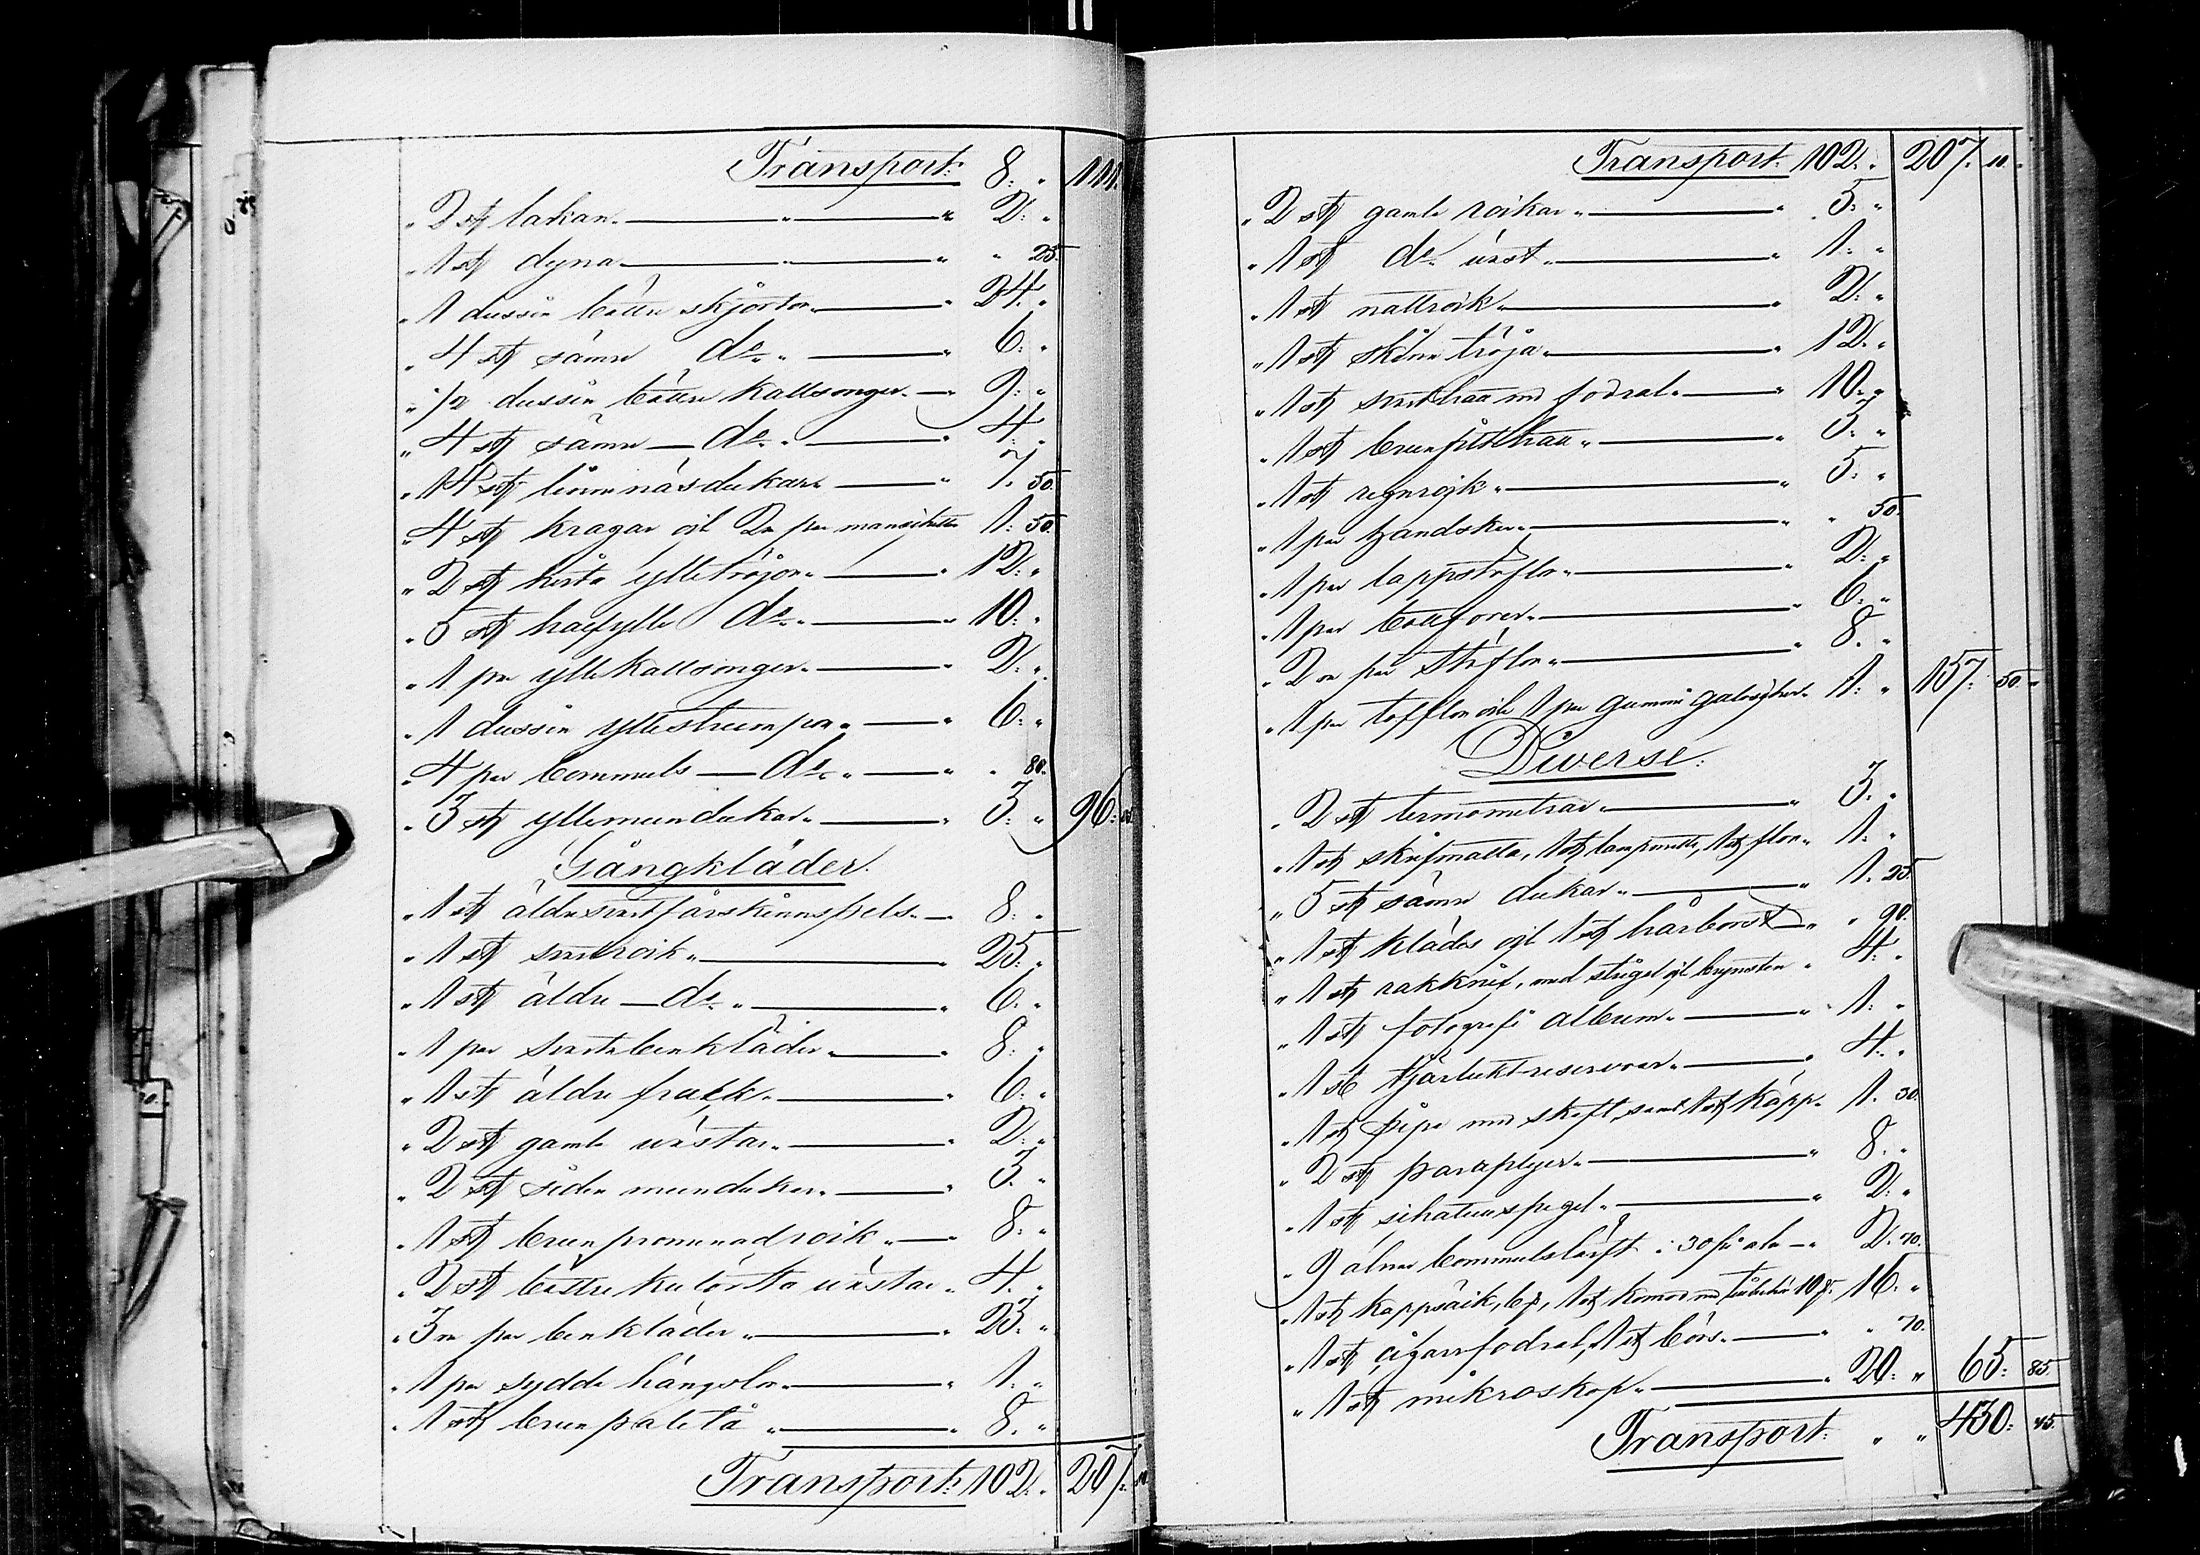 Transport: 8: " 111:
" 2 st lakan " " " 2: "
" 1 st dyna " " " " 25.
" 1 dussin bättre skjortor " " 24: "
" 4 st sämre do " " 6: "
" 1/2 dussin bättre kallsonger " 9: "
" 4 st sämre do " " 4: "
" 14 st linnenäsdukar " " 7. 50.
" 4 st kragar och 2 par manschetter 1: 50.
" 2 st hvita ylletröjor " " 12: "
" 5 st halfylle do " " 10: "
" 1 par yllekallsonger " " 2: "
" 1 dussin yllestrumpor " " 6: "
" 4 par bommuls do " " " 80.
" 3 st yllemundukar " " 3: " 96: 05.
Gångkläder.
" 1 st äldre svart fårskinnspels " 8: "
" 1 st svart rock " " 25: "
" 1 st äldre do " " 6: "
" 1 par svarta benkläder " " 8: "
" 1 st äldre frack " " 6: "
" 2 st gamle västar " " 2: "
" 2 st siden mundukar " " 3. "
" 1 st brun promenadrock " " 8: "
" 2 st bättre kulörta västar " 4. "
" 3 par benkläder " " 23: "
" 1 par sydde hängslor " " 1: "
" 1 st brun paletå " " 8. "
Transport: 102: " 207: 10.
Transport: 102: " 207: 10.
" 2 st gamle rockar " " 5: "
" 1 st do väst " " 1: "
" 1 st nattrock " " 2: "
" 1 st skinntröja " " 12: "
" 1 st svart hatt med fodral " " 10: "
" 1 st brun filthatt " " 3: "
" 1 st regnrock " " 5: "
" 1 par handskar " " " 50.
" 1 par lappstöflor " " 2: "
" 1 par bottforer " " 6: "
" 2 par stöflor " " 8. "
" 1 par tofflor och 1 par gummi galoscher " 1: " 157: 50. "
Diverse:
" 2 st termometrar " " 3. "
" 1 st skrifmatta, 1 st lampmatta, 1 st flor " 1: "
" 5 st sämre dukar " " 1. 25.
" 1 st kläder och 1 st hårborst " " 90.
" 1 st rakknif, med strigel och brynsten " 4: "
" 1 st fotografi album " " 1: "
" 1 st tjärlukt-reservoar " " 4. "
" 1 st pipa med skaft samt 1 st käpp " 1. 30.
" 2 st paraplyer " " 8. "
" 1 st schatullspegel " " 2: "
" 9 alnar bommulslärft i 30 pr aln " 2: 70.
" 1 st kappsäck, 6 , 1 st komod med tillbehör 10 16: "
" 1 st cigarrfodral, 1 st börs " " " 70.
" 1 st mikroskop " " 20: " 65: 85.
Transport: " " 430: 45.